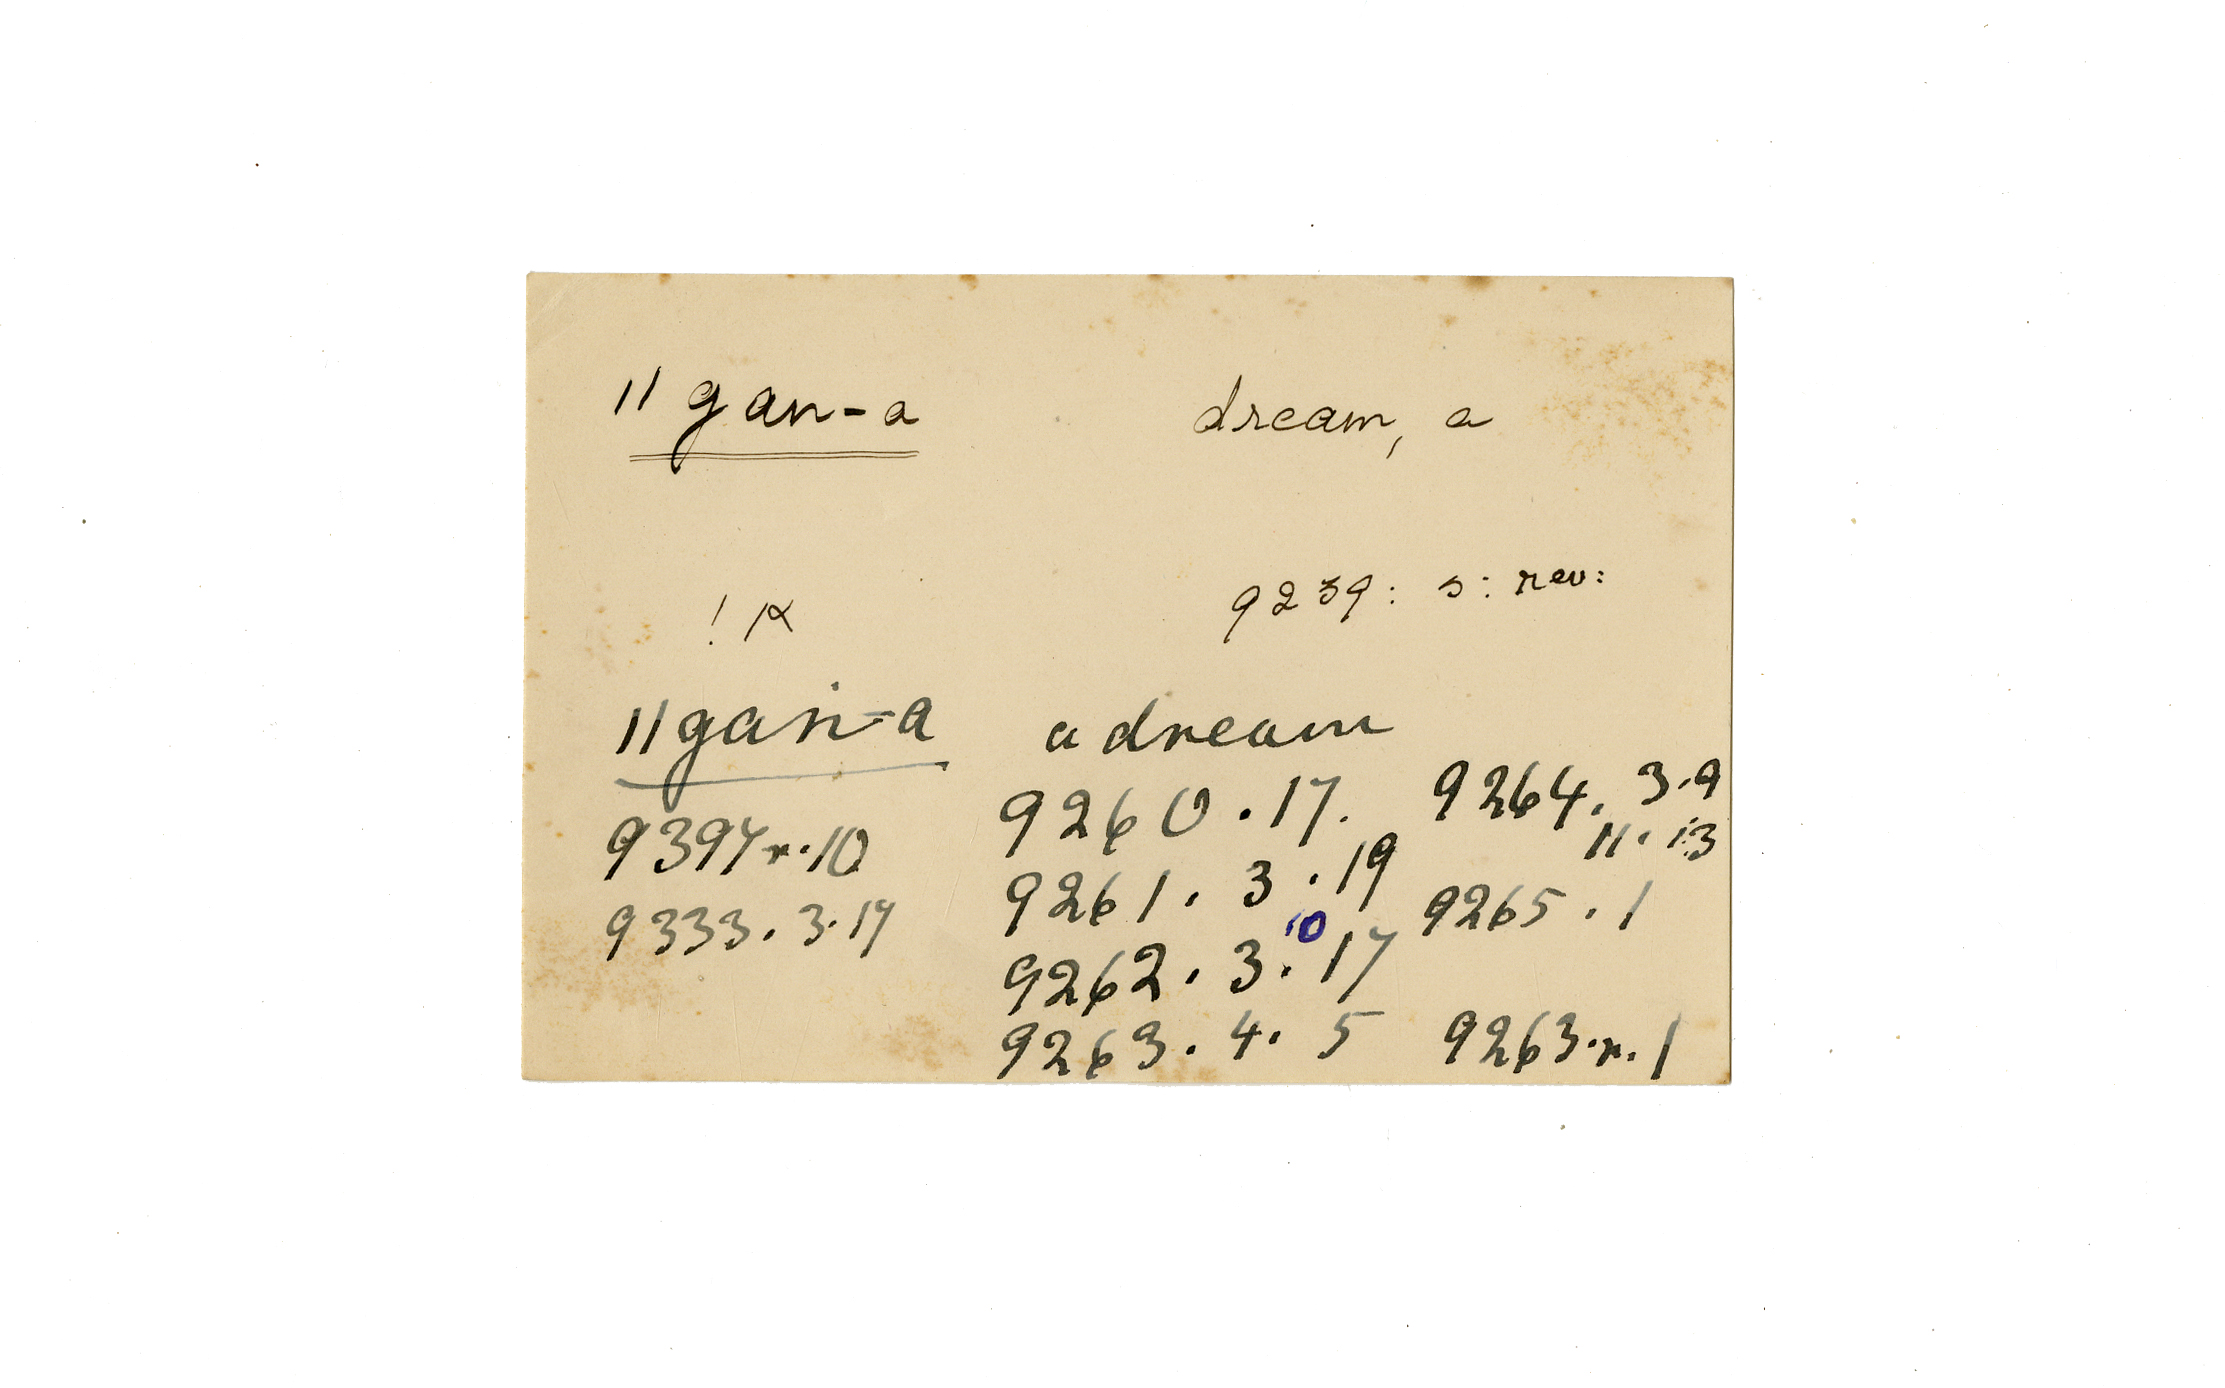 ǁgan-a dream, a
! ʞ 9239: 5: rev:
ǁgaṅ-a a dream
9397r.10 9260.17. 9264. 3.9
11. 13
9333. 3.17 9261. 3.19 9265.1
10
9262. 3.17
9263. 4. 5 9263.r.1